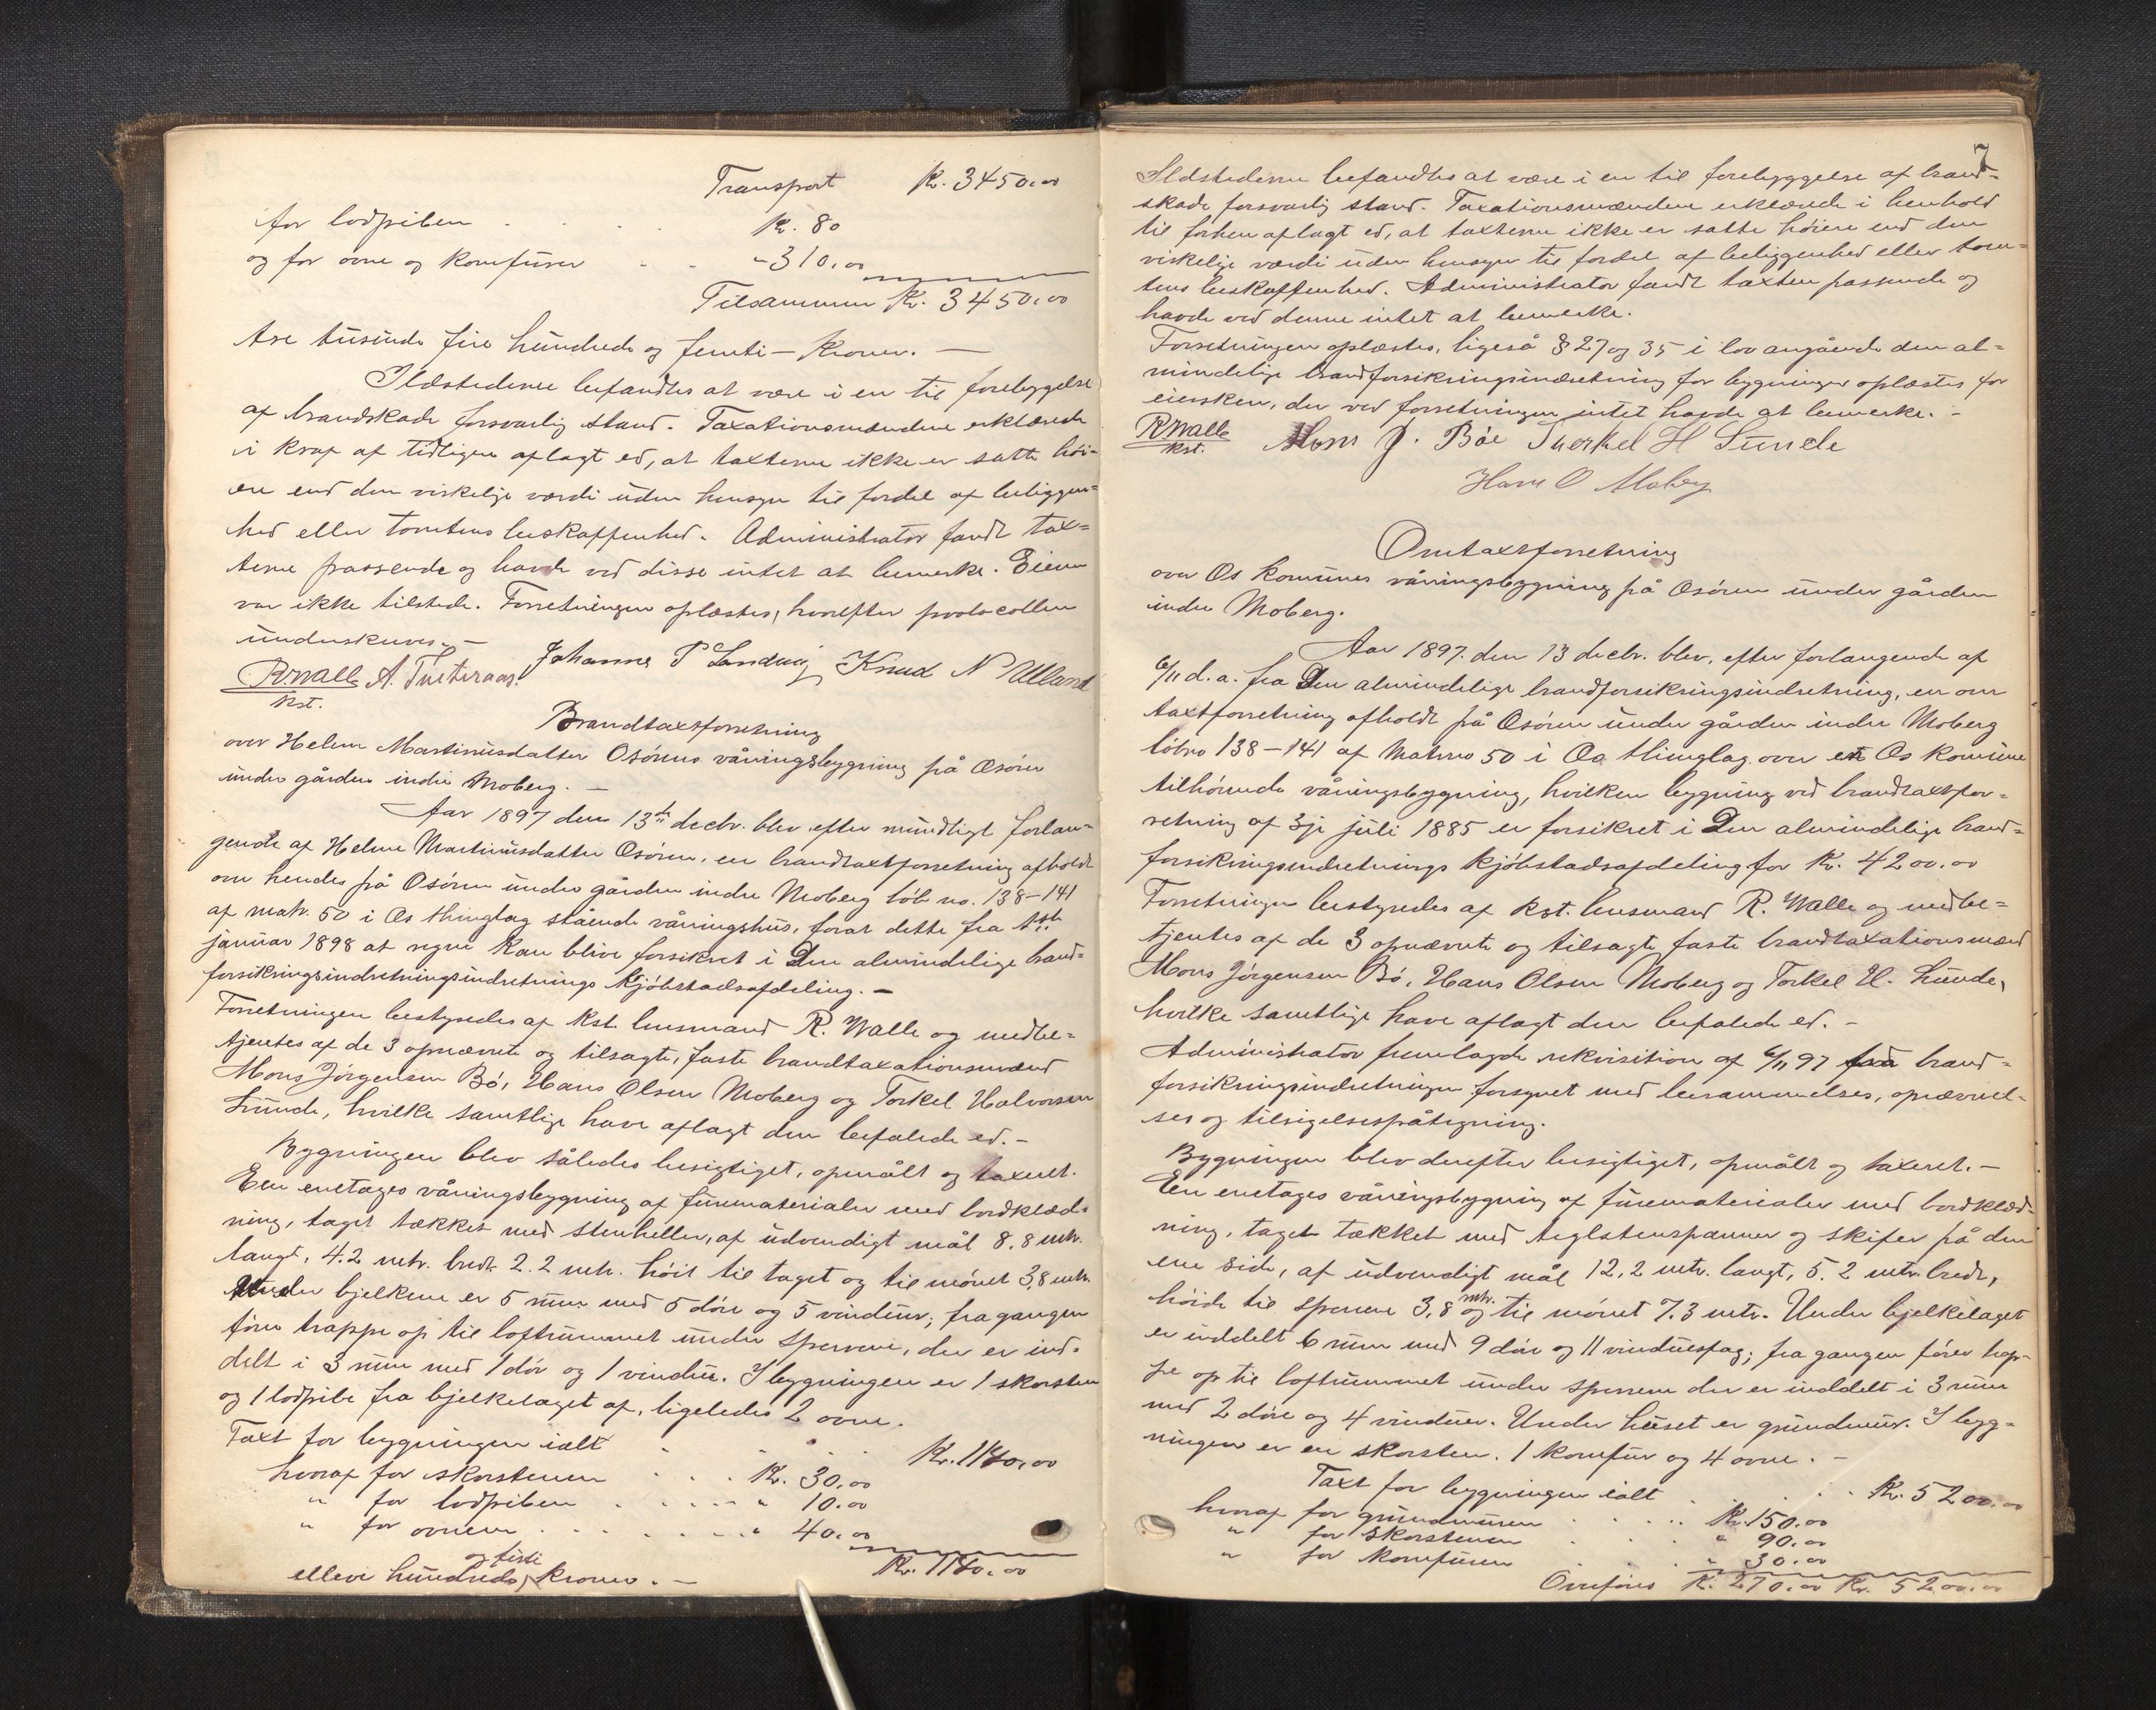 Transport Kr. 3450.00
for lodpiben . . . . Kr. 80
og for ovne og komfurer - - " 310.00
Tilsammen Kr. 3450.00
tre tusinde fire hundrede og femti - Kroner. -
Ildstederne befandtes at være i en til forebyggelse
af brandskade forsvarlig stand. Taxationsmændene erklærede
i kraf af tidligere aflagt ed, at taxterne ikke er satte høi-
ere end den virkelige værdi uden hensyn til fordel af beliggen-
hed eller tomtens beskaffenhed. Administrator fandt tax-
terne passende og havde ved disse intet at bemerke. Eieren
var ikke tilstede. Forretningen oplæstes, hvorefter protocollen
underskreves. -
RWalle A. Tveteraas. Johannes P Sandvig Knud N Ulland
Kst.
Brandtaxtforretning
over Helene Martinusdatter Osørens våningsbygning på Osøren
under gården indre Moberg. -
Aar 1897 den 13de decbr. blev efter mundtligt forlan-
gende af Helene Martinusdatter Osøren, en brandtaxtforretning afholdt
over hendes på Osøren under gården indre Moberg løb no. 138-141
af matr. 50 i Os thinglag stående våningshus, forat dette fra 1ste
januar 1898 at regne kan blive forsikret i Den almindelige brand-
forsikringsindretningsindretnings kjøbstadsafdeling. -
Forretningen bestyredes af kst. lensmand R. Walle og medbe-
tjentes af de 3 opnævnte og tilsagte, faste brandtaxationsmænd
Mons Jørgensen Bø, Hans Olsen Moberg og Torkel Halvorsen
Lunde, hvilke samtlige have aflagt den befalede ed. -
Bygningen blev således besigtiget, opmålt og taxeret.
Een enetages våningsbygning af furumaterialer med bordklæd-
ning, taget tækket med stenheller, af udvendigt mål 8.8 mtr.
langt, 4.2 mtr. bredt 2.2 mtr. høit til taget og til mønet 3,8 mtr.
Under bjelkene er 5 rum med 5 døre og 5 vinduer; fra gangen
fører trappe op til loftrummet under sperrene, der er ind-
delt i 3 rum med 1 dør og 1 vindu. I bygningen er 1 skorsten
og 1 lodpibe fra bjelkelaget af, ligeledes 2 ovne.
Taxt for bygningen ialt . . . . Kr. 1140.00
hvoraf for skorstenen . . . Kr. 30.00
" for lodpiben . . . . . " 10.00
" for ovnene . . . . . . " 40.00
Kr. 1140.00
og firti
elleve hundrede, kroner. -
7
Ildstederne befandtes at være i en til forebyggelse af brand-
skade forsvarlig stand. Taxationsmændene erklærede i henhold
til forhen aflagt ed, at taxterne ikke er satte høiere end den
virkelige værdi uden hensyn til fordel af beliggenhed eller tom-
tens beskaffenhed. Administrator fandt taxten passende og
havde ved denne intet at bemerke.
Forretningen oplæstes, ligeså § 27 og 35 i lov angående den al-
mindelige brandforsikringsindretning for bygninger oplæstes for
eiersken, der ved forretningen intet havde at bemerke. -
RWalle Mons J. Bøe Tuerkel H Lunde
Kst.
Hans O Moberg
Omtaxtforretning
over Os komunes våningsbygning på Osøren under gården
indre Moberg.
Aar 1897. den 13 decbr. blev, efter forlangende af
6/11 d.a. fra Den almindelige brandforsikringsindretning, en om
taxtforretning afholdt på Osøren under gården indre Moberg
løbno 138-141 af Matrno 50 i Os thinglag over en Os komune
tilhørende våningsbygning, hvilken bygning ved brandtaxtfor-
retning af 3je juli 1885 er forsikret i Den almindelige brand-
forsikringsindretnings kjøbstadsafdeling for Kr. 4200.00
Forretningen bestyredes af kst. lensmand R. Walle og medbe-
tjentes af de 3 opnævnte og tilsagte faste brandtaxationsmænd
Mons Jørgensen Bø, Hans Olsen Moberg og Torkel H. Lunde,
hvilke samtlige have aflagt den befalede ed. -
Administrator fremlagde rekvisition af 6/11 97 fra brand-
forsikringsindretningen forsynet med berammelses, opnævnel-
ses og tilsigelsespåtegning.
Bygningen blev derefter besigtiget, opmålt og taxeret. -
En enetages våningsbygning af furumaterialer med bordklæd-
ning, taget tækket med teglstenspanner og skifer på den
ene side, af udvendigt mål 12,2 mtr. langt, 5.2 mtr. bredt,
høide til sperrene 3,8 mtr. og til mønet 7.3 mtr. Under bjelkelaget
er inddelt 6 rum med 9 døre og 11 vinduesfag; fra gangen fører trap-
pe op til loftrummet under sperrene der er inddelt i 3 rum
med 2 døre og 4 vinduer. Under huset er grundmur. I byg-
ningen er en skorsten. 1 komfur og 4 ovne. -
Taxt for bygningen ialt . . . Kr. 5200.00
hvoraf for grundmuren . . . . Kr. 150.00
" for skorstenen . . . " 90.00
" for komfuren . . . " 30.00
Overføres Kr. 270.00 Kr. 5200.00